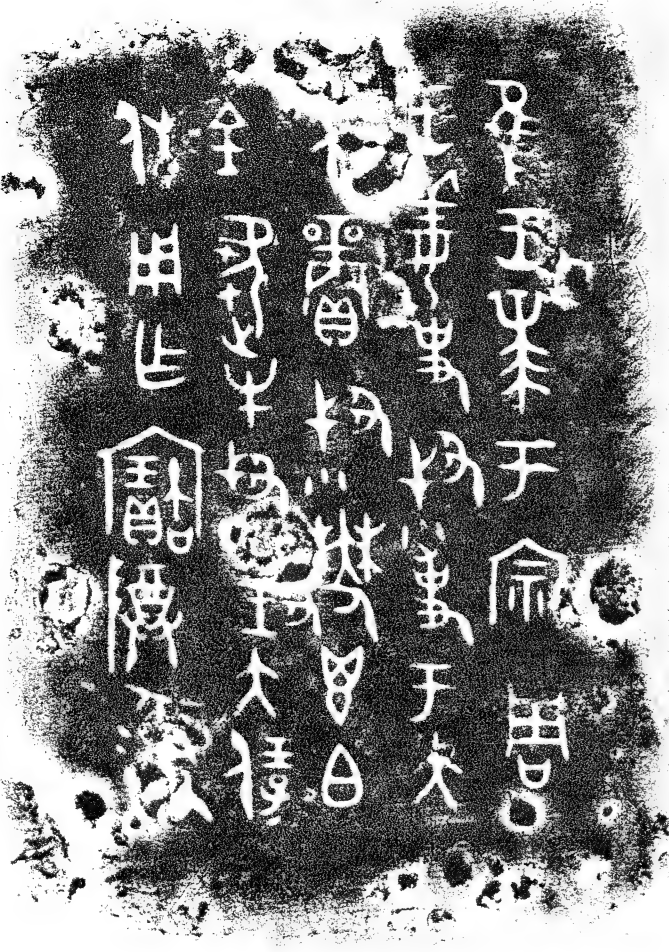 隹王𠦪于宗周
王姜史叔事于大
保賞叔鬱鬯白
金芻牛叔對大保
休用乍寶尊彝